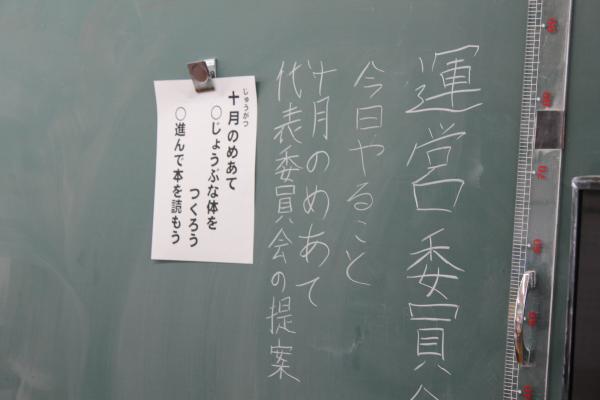 運営委員会
今日やること
十月のめあて
代表委員会の提案
じゅうがつ
十月のめあて
○じょうぶな体を
つくろう
○進んで本を読もう